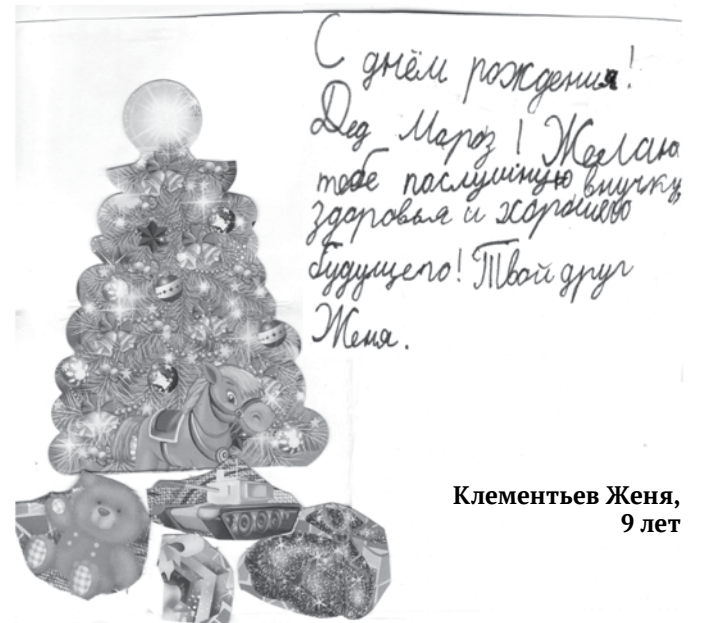 С днём рождения!
Дед Мороз! Желаю
тебе послушную внучку,
здоровья и хорошего
будущего! Твой друг
Женя.
Клементьев Женя,
9 лет